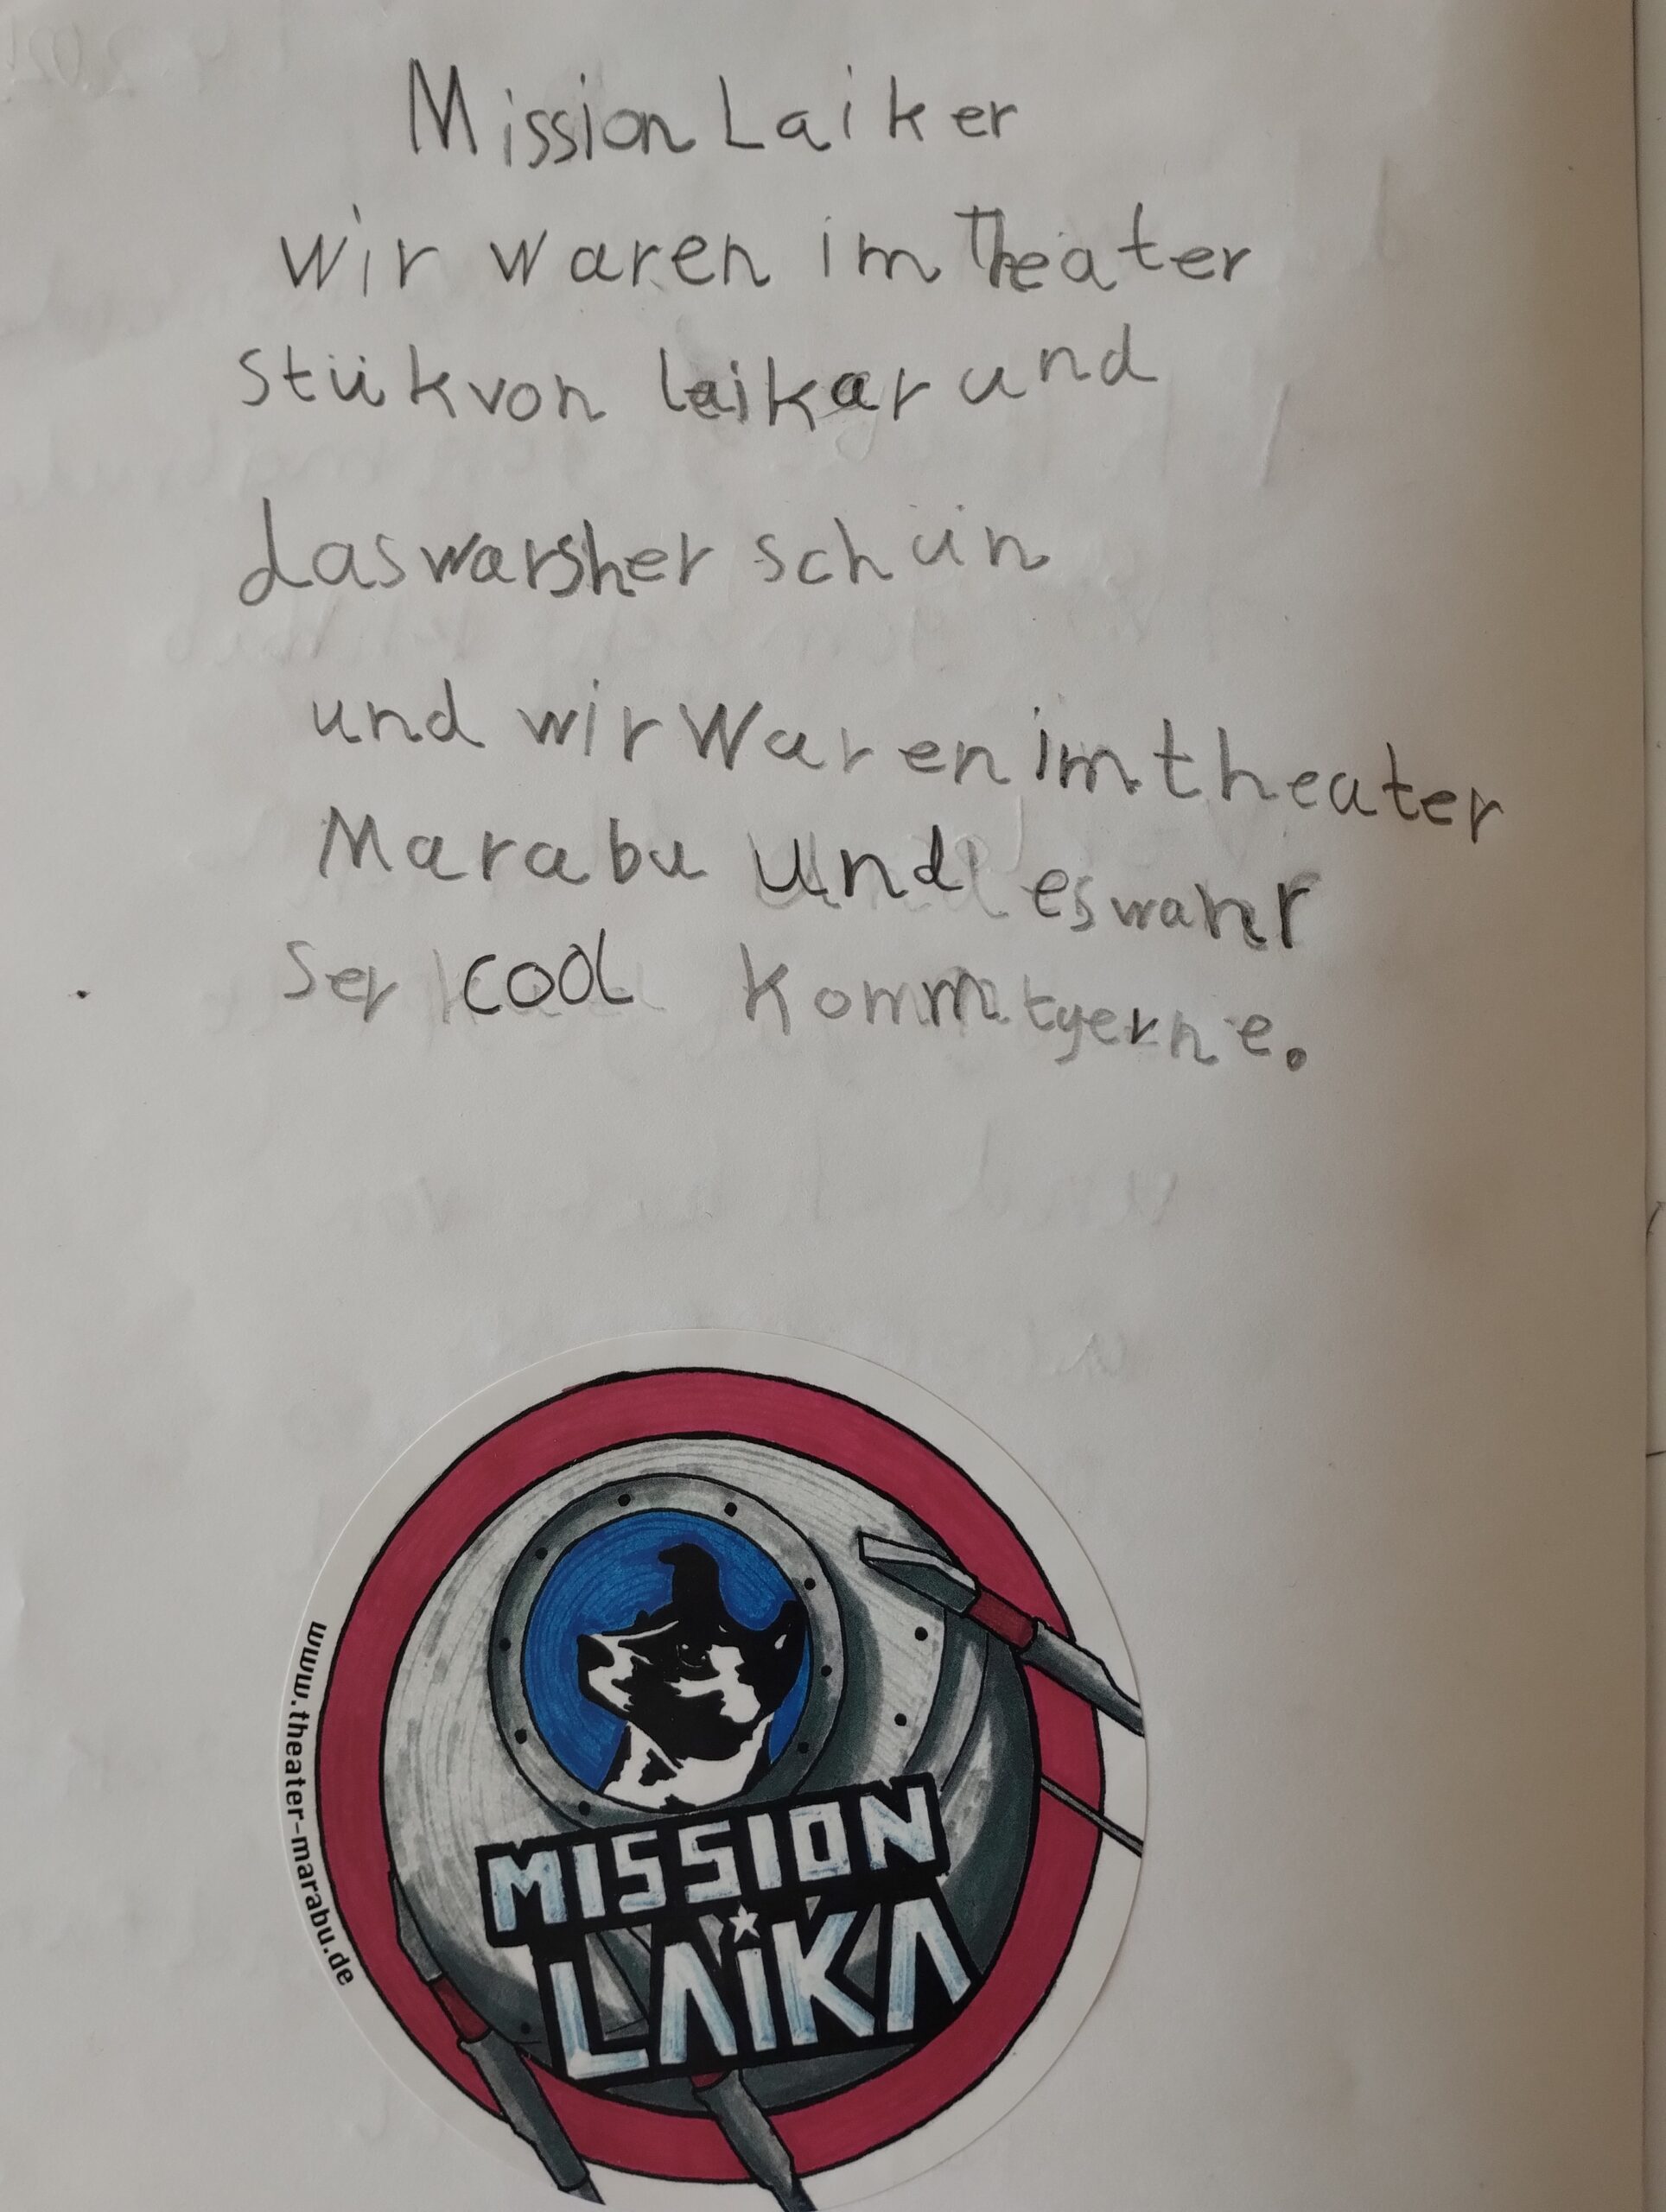 Mission Laiker
wir waren im Theater
stük von laikar und
das war sher schün
und wir Waren im theater
Marabu und es wahr
Ser cool Kommt gerne.
www.theater-marabu.de
MISSION
LAiKA